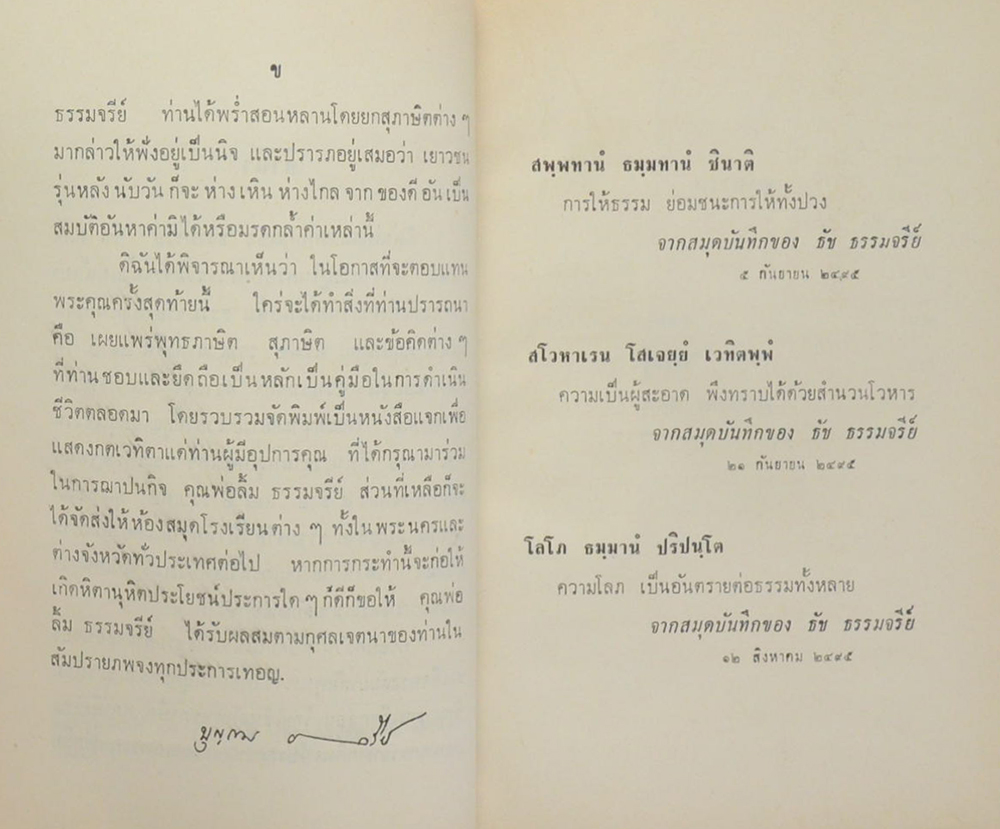 ข
ธรรมจรีย์ ท่านได้พร่ำสอนหลานโดยยกสุภาษิตต่าง ๆ
มากล่าวให้ฟังอยู่เป็นนิจ และปรารภอยู่เสมอว่า เยาวชน
รุ่นหลัง นับวัน ก็จะ ห่าง เหิน ห่างไกล จาก ของดี อัน เป็น
สมบัติอันหาค่ามิได้หรือมรดกล้ำค่าเหล่านี้
ดิฉันได้พิจารณาเห็นว่า ในโอกาสที่จะตอบแทน
พระคุณครั้งสุดท้ายนี้ ใคร่จะได้ทำสิ่งที่ท่านปรารถนา
คือ เผยแพร่พุทธภาษิต สุภาษิต และข้อคิดต่าง ๆ
ที่ท่านชอบและยึดถือเป็นหลักเป็นคู่มือในการดำเนิน
ชีวิตตลอดมา โดยรวบรวมจัดพิมพ์เป็นหนังสือแจกเพื่อ
แสดงกตเวทิตาแด่ท่านผู้มีอุปการคุณ ที่ได้กรุณามาร่วม
ในการฌาปนกิจ คุณพ่อลิ้ม ธรรมจรีย์ ส่วนที่เหลือก็จะ
ได้จัดส่งให้ห้องสมุดโรงเรียนต่าง ๆ ทั้งในพระนครและ
ต่างจังหวัดทั่วประเทศต่อไป หากการกระทำนี้จะก่อให้
เกิดหิตานุหิตประโยชน์ประการใด ๆ ก็ดีก็ขอให้ คุณพ่อ
ลิ้ม ธรรมจรีย์ ได้รับผลสมตามกุศลเจตนาของท่านใน
สัมปรายภพจงทุกประการเทอญ.
สพฺพทานํ ธมฺมทานํ ชินาติ
การให้ธรรม ย่อมชนะการให้ทั้งปวง
จากสมุดบันทึกของ ธัช ธรรมจรีย์
๕ กันยายน ๒๔๙๕
สโวหาเรน โสเจยฺยํ เวทิตพฺพํ
ความเป็นผู้สะอาด พึงทราบได้ด้วยสำนวนโวหาร
จากสมุดบันทึกของ ธัช ธรรมจรีย์
๒๑ กันยายน ๒๔๙๕
โลโภ ธมฺมานํ ปริปนฺโต
ความโลภ เป็นอันตรายต่อธรรมทั้งหลาย
จากสมุดบันทึกของ ธัช ธรรมจรีย์
๑๒ สิงหาคม ๒๔๙๕